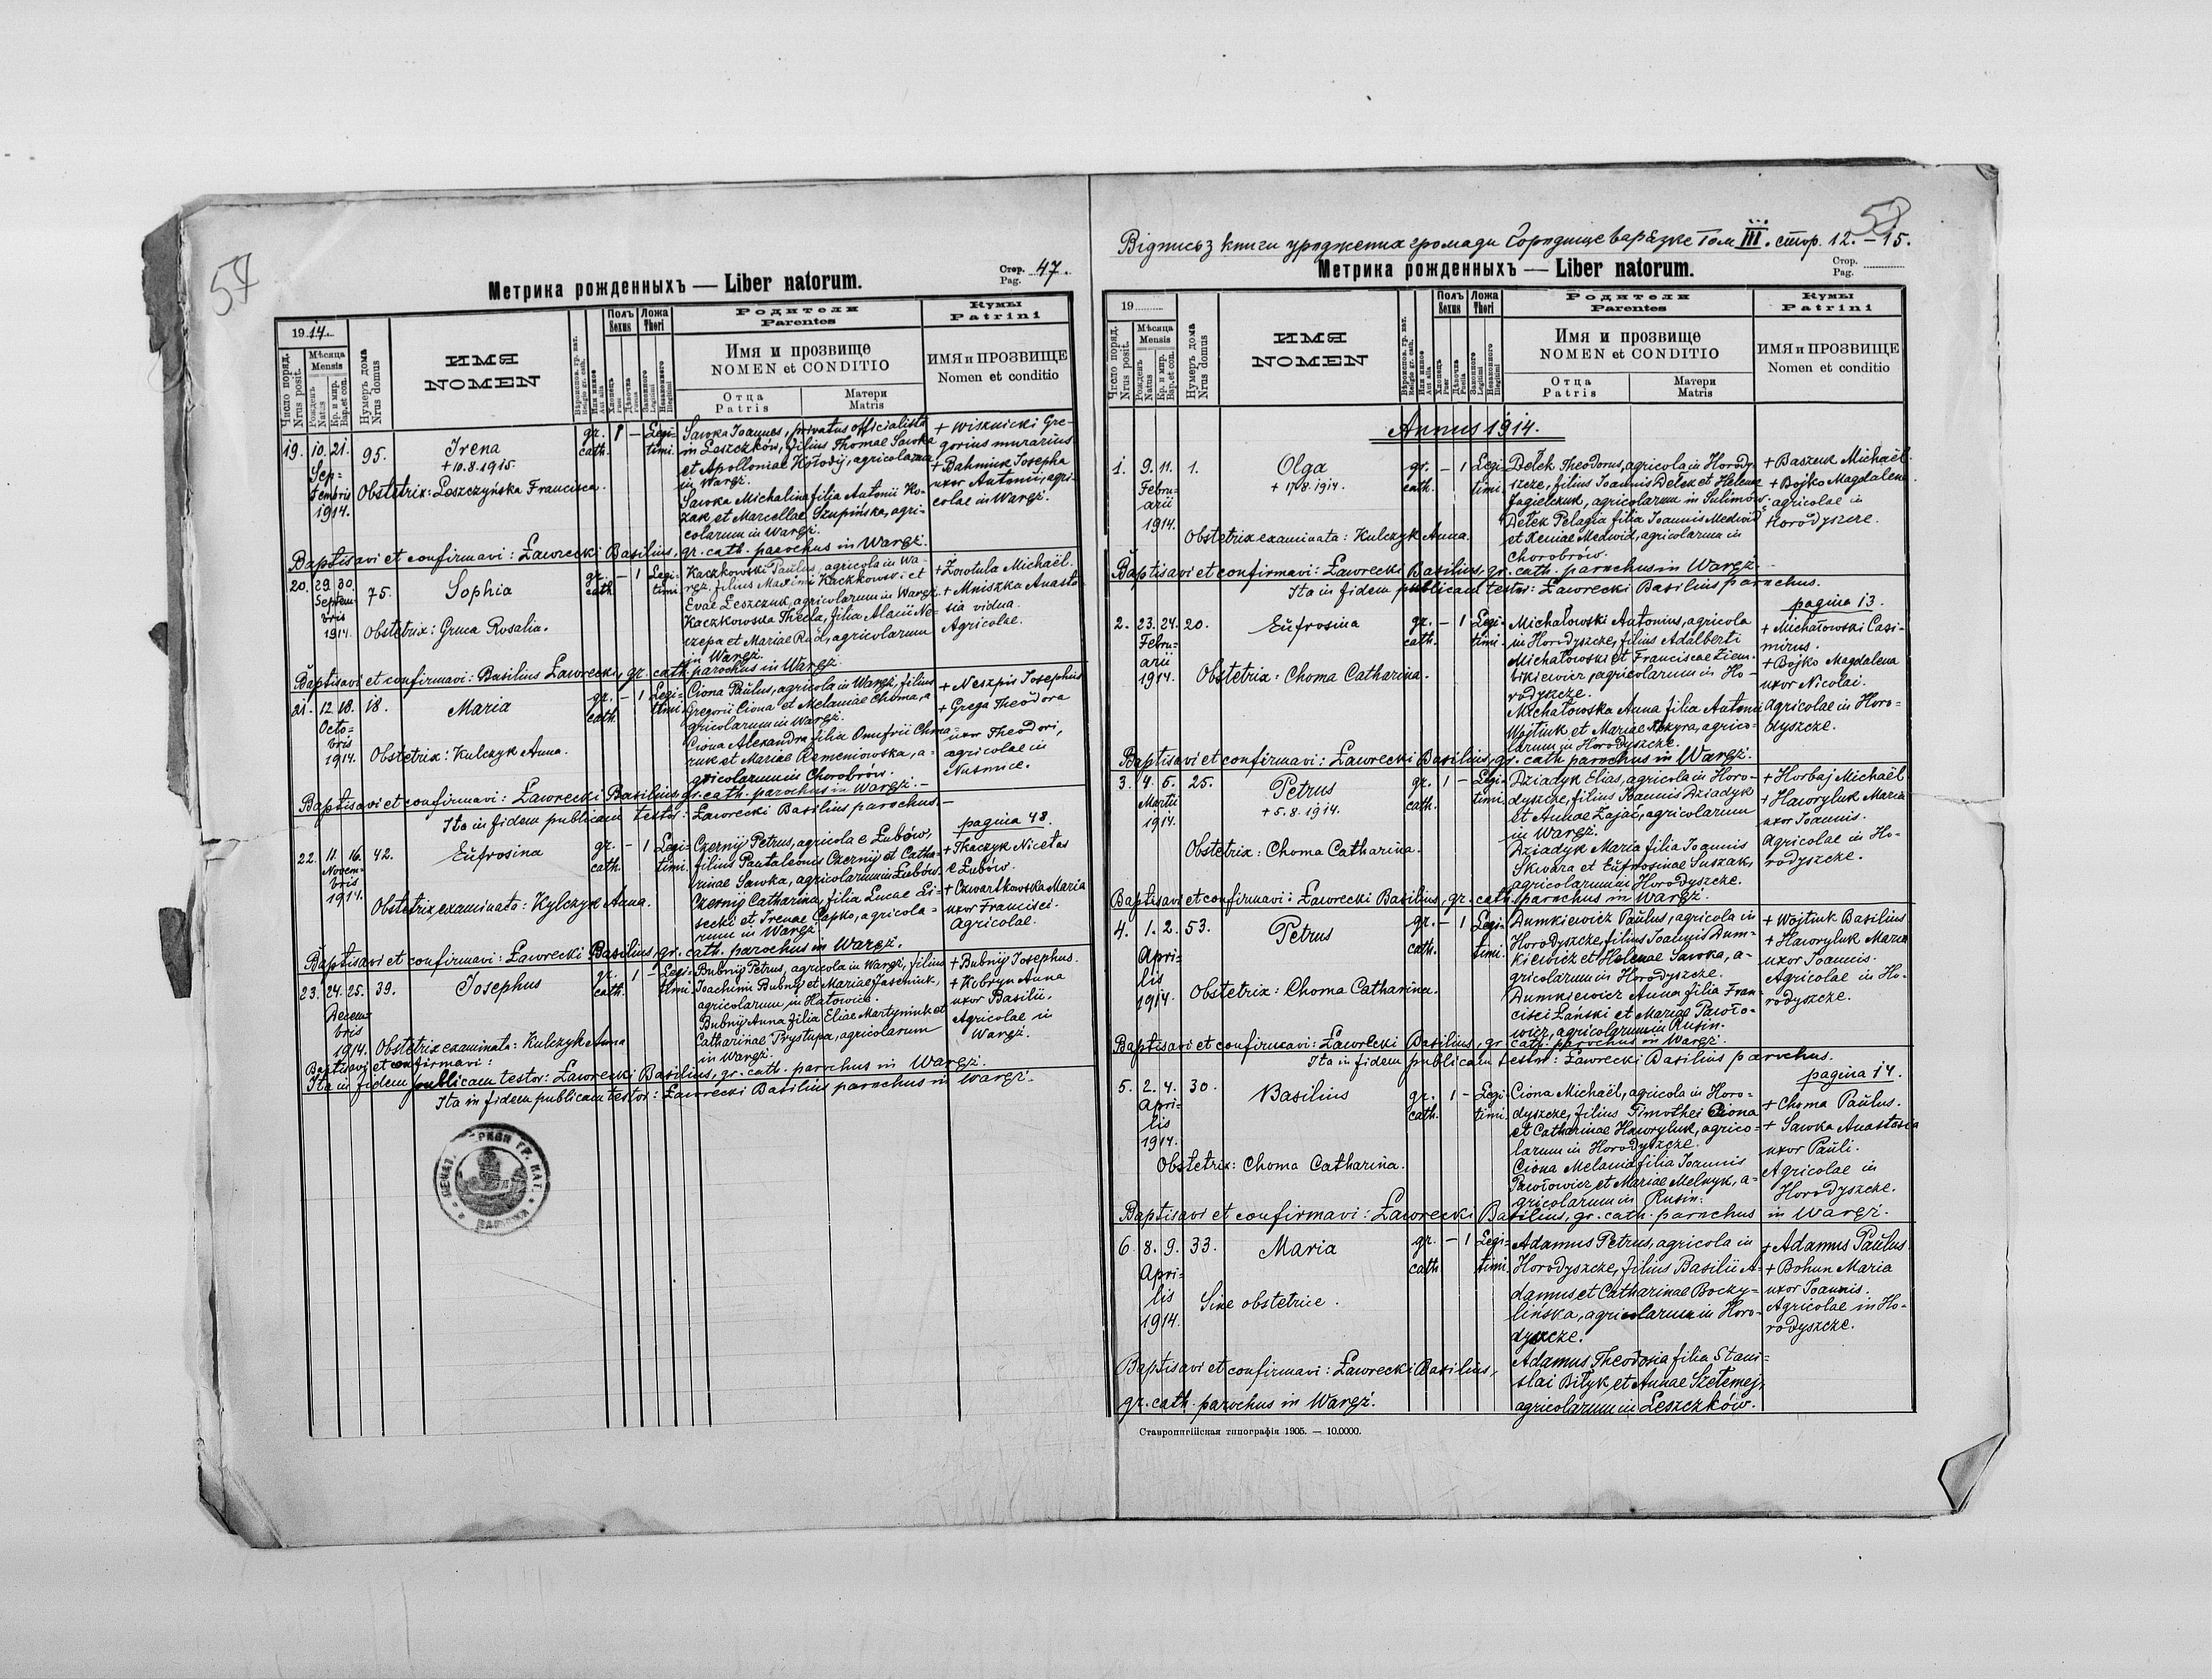 57
Стор. 47.
Pag.
Метрика рожденныхъ — Liber natorum.
19 14.
Число поряд.
Nrus posit.
Мѣсяца
Mensis
Рожденъ
Natus
Кр. и мир.
Bap. et con.
Нумеръ дома
Nrus domus
ИМЯ
NOMEN
Вѣроиспов. гр. кат.
Religio gr. cath.
Или инное
Aut alia
Полъ
Sexus
Хлопецъ
Puer
Дѣвочка
Puella
Ложа
Thori
Законного
Legitimi
Незаконного
Illegitimi
Родители
Parentes
Имя и прозвище
NOMEN et CONDITIO
Отца
Patris
Матери
Matris
Кумы
Patrini
ИМЯ и ПРОЗВИЩЕ
Nomen et conditio
19. 10. 21. Sep- tembris 1914. 95.
Irena
+ 10.8.1915.
Obstetrix: Leszczyńska Francisca.
gr. cath. 1 — Legi- timi.
Sawka Joannes, privatus officialista
in Leszczków, filius Thomae Sawka
et Apolloniae Hołodij, agricolarum
in Waręż.
Sawka Michalina filia Antonii Ko-
zak et Marcellae Szupińska, agri-
colarum in Waręż.
+ Wisznicki Gre-
gorius murarius
+ Bahniuk Josepha
uxor Antonii, agri-
colae in Waręż.
Baptisavi et confirmavi: Ławrecki Basilius, gr. cath. parochus in Waręż.
20. 29. 30. Septem- bris 1914. 75.
Sophia
Obstetrix: Gruca Rosalia.
gr. cath. — 1 Legi- timi.
Kaczkowski Paulus, agricola in Wa-
ręż, filius Maximi Kaczkowski et
Evae Leszczuk, agricolarum in Waręż.
Kaczkowska Thecla, filia Alexii Ne-
czepa et Mariae Rud, agricolarum
in Waręż.
+ Żowtula Michaël.
+ Mniszka Anasta-
sia vidua.
Agricolae.
Baptisavi et confirmavi: Basilius Ławrecki, gr. cath. parochus in Waręż.
21. 12. 18. Octo- bris 1914. 18.
Maria
Obstetrix: Kulczyk Anna.
gr. cath. — 1 Legi- timi.
Ciona Paulus, agricola in Waręż, filius
Gregorii Ciona et Melaniae Choma, a
gricolarum in Waręż.
Ciona Alexandra filia Onufrii Choma-
ruk et Mariae Remeniowska, a-
gricolarum in Chorobrów.
+ Neszpis Josephus
+ Grega Theodora
uxor Theodori,
agricolae in
Nusmice.
Baptisavi et confirmavi: Ławrecki Basilius, gr. cath. parochus in Waręż. —
Ita in fidem publicam testor: Ławrecki Basilius parochus —
pagina 48.
22. 11. 16. Novem- bris 1914. 42.
Eufrosina
Obstetrix examinata: Kylczyk Anna.
gr. cath. — 1 Legi- timi.
Czernij Petrus, agricola e Łubów,
filius Pantaleonis Czernij et Catha-
rinae Sawka, agricolarum in Łubów.
Czernij Catharina, filia Lucae Li-
secki et Irenae Capko, agricola-
rum in Waręż.
+ Tkaczyk Nicetas
e Łubów.
+ Czwartkowska Maria
uxor Francisci.
Agricolae.
Baptisavi et confirmavi: Ławrecki Basilius, gr. cath. parochus in Waręż.
23. 24. 25. Decem- bris 1914. 39.
Josephus
Obstetrix examinata: Kulczyk Anna
gr. cath. 1 — Legi- timi.
Bubnij Petrus, agricola in Waręż, filius
Joachimi Bubnij et Mariae Jaseniuk,
agricolarum, in Hatowice.
Bubnij Anna filia Eliae Martyniuk et
Catharinae Prystupa, agricolarum
in Waręż.
+ Bubnij Josephus.
+ Kobryn Anna
uxor Basilii.
Agricolae in
Waręż.
Baptisavi et confirmavi:
Ita in fidem publicam testor: Ławrecki Basilius, gr. cath. parochus in Waręż.
Ita in fidem publicam testor: Ławrecki Basilius parochus in Waręż.
Відпись з книги уроджених громади Городище варязке Том III. стор. 12. – 15.
Метрика рожденныхъ — Liber natorum.
Стор.
Pag.
19
Число поряд.
Nrus posit.
Мѣсяца
Mensis
Рожденъ
Natus
Кр. и мир.
Bap. et con.
Нумеръ дома
Nrus domus
ИМЯ
NOMEN
Вѣроиспов. гр. кат.
Religio gr. cath.
Или инное
Aut alia
Полъ
Sexus
Хлопецъ
Puer
Дѣвочка
Puella
Ложа
Thori
Законного
Legitimi
Незаконного
Illegitimi
Родители
Parentes
Имя и прозвище
NOMEN et CONDITIO
Отца
Patris
Матери
Matris
Кумы
Patrini
ИМЯ и ПРОЗВИЩЕ
Nomen et conditio
Annus 1914.
1. 9. 11. Febru- arii 1914. 1.
Olga
+ 17.8.1914.
Obstetrix examinata: Kulczyk Anna.
gr. cath. — 1 Legi- timi.
Dełek Theodorus, agricola in Horody-
szcze, filius Joannis Dełek et Helenae
Jagielczuk, agricolarum in Sulimów.
Dełek Pelagia filia Joannis Medwid
et Xeniae Medwid, agricolarum in
Chorobrów.
+ Baszuk Michaël
+ Bojko Magdalena
agricolae in
Horodyszcze.
Baptisavi et confirmavi: Ławrecki Basilius, gr. cath. parochus in Waręż.
Ita in fidem publicam testor: Ławrecki Basilius parochus.
pagina 13.
2. 23. 24. Febru- arii 1914. 20.
Eufrosina
Obstetrix: Choma Catharina.
gr. cath. — 1 Legi- timi.
Michałowski Antonius, agricola
in Horodyszcze, filius Adalberti
Michałowski et Franciscae Ziem-
bikiewicz, agricolarum in Ho-
rodyszcze.
Michałowska Anna filia Antonii
Wojtiuk et Mariae, agrico-
larum in Horodyszcze.
+ Michałowski Casi-
mirus.
+ Bojko Magdalena
uxor Nicolai.
Agricolae in Horo-
dyszcze.
Baptisavi et confirmavi: Ławrecki Basilius, gr. cath. parochus in Waręż.
3. 4. 5. Martii 1914. 25.
Petrus
+ 5.8.1914.
Obstetrix: Choma Catharina.
gr. cath. 1 — Legi- timi.
Dziadyk Elias, agricola in Horo-
dyszcze, filius Joannis Dziadyk
et Annae Zając, agricolarum
in Waręż.
Dziadyk Maria filia Joannis
Skwara et Eufrosinae Suszak,
agricolarum in Horodyszcze.
+ Horbaj Michaël
+ Hawryluk Maria
uxor Joannis.
Agricolae in Ho-
rodyszcze.
Baptisavi et confirmavi: Ławrecki Basilius, gr. cath. parochus in Waręż.
4. 1. 2. Apri- lis 1914. 53.
Petrus
Obstetrix: Choma Catharina.
gr. cath. — 1 Legi- timi.
Dumkiewicz Paulus, agricola in
Horodyszcze, filius Joannis Dum-
kiewicz et Helenae Sawka, a-
gricolarum in Horodyszcze.
Dumkiewicz Anna filia Fran-
cisci Łański et Mariae Pawło-
wicz, agricolarum in Rusin.
+ Wojtiuk Basilius
+ Hawryluk Maria
uxor Joannis.
Agricolae in Ho-
rodyszcze.
Baptisavi et confirmavi: Ławrecki Basilius, gr. cath. parochus in Waręż.
Ita in fidem publicam testor: Ławrecki Basilius parochus.
pagina 14.
5. 2. 4. Apri- lis 1914. 30.
Basilius
Obstetrix: Choma Catharina.
gr. cath. 1 — Legi- timi.
Ciona Michaël, agricola in Horo-
dyszcze, filius Timothei Ciona
et Catharinae Hawryluk, agrico-
larum in Horodyszcze.
Ciona Melania filia Joannis
Pawłowicz et Mariae Melnyk, a-
gricolarum in Rusin.
+ Choma Paulus.
+ Sawka Anastasia
uxor Pauli.
Agricolae in
Horodyszcze.
Baptisavi et confirmavi: Ławrecki Basilius, gr. cath. parochus in Waręż.
6. 8. 9. Apri- lis 1914. 33.
Maria
Sine obstetrice.
gr. cath. — 1 Legi- timi.
Adamus Petrus, agricola in
Horodyszcze, filius Basilii A-
damus et Catharinae Boczy-
lińska, agricolarum in Horo-
dyszcze.
Adamus Theodosia filia Stani-
slai Biłyk et Annae Szełemej,
agricolarum in Leszczków.
+ Adamus Paulus
+ Bohun Maria
uxor Joannis.
Agricolae in Ho-
rodyszcze.
Baptisavi et confirmavi: Ławrecki Basilius,
gr. cath. parochus in Waręż.
Ставропигійская типографія 1905. — 10.0000.